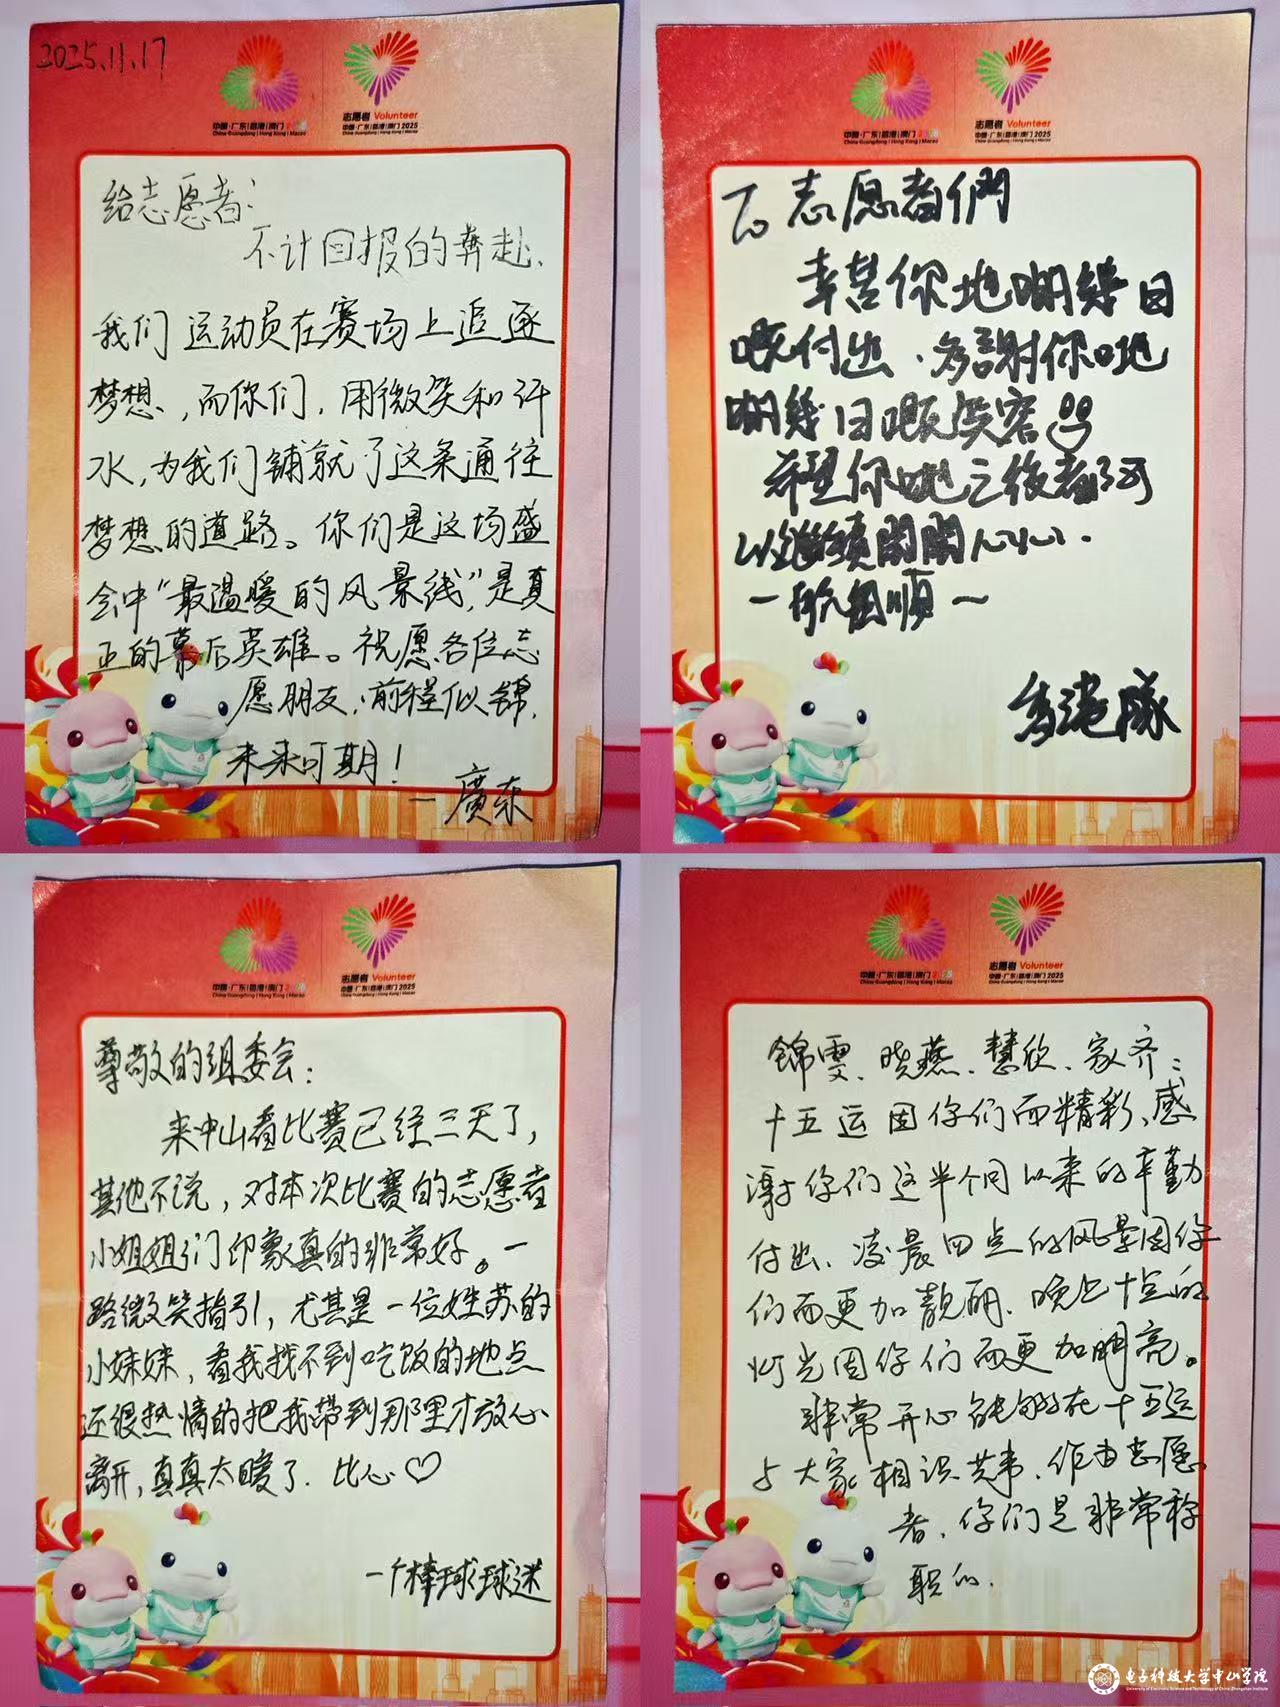 2025.11.17
中国·广东|香港|澳门 2025
China·Guangdong | Hong Kong | Macao
志愿者 Volunteer
中国·广东|香港|澳门 2025
China·Guangdong | Hong Kong | Macao
给志愿者:
不计回报的奔赴、
我们运动员在赛场上追逐
梦想,而你们,用微笑和汗
水,为我们铺就了这条通往
梦想的道路。你们是这场盛
会中“最温暖的风景线”,是真
正的幕后英雄。祝愿各位志
愿朋友,前程似锦,
未来可期!
—廣东
中国·广东|香港|澳门 2025
China·Guangdong | Hong Kong | Macao
志愿者 Volunteer
中国·广东|香港|澳门 2025
China·Guangdong | Hong Kong | Macao
To 志愿者們
辛苦你地咁幾日
嘅付出、多謝你哋
咁幾日嘅笑容
希望你哋之後都可
以繼續開開心心.
一切順~
香港隊
中国·广东|香港|澳门 2025
China·Guangdong | Hong Kong | Macao
志愿者 Volunteer
中国·广东|香港|澳门 2025
China·Guangdong | Hong Kong | Macao
尊敬的组委会:
来中山看比赛已经三天了,
其他不说,对本次比赛的志愿者
小姐姐们印象真的非常好。一
路微笑指引,尤其是一位姓苏的
小妹妹,看我找不到吃饭的地点
还很热情的把我带到那里才放心
离开,真真太暖了.比心♡
一个棒球球迷
中国·广东|香港|澳门 2025
China·Guangdong | Hong Kong | Macao
志愿者 Volunteer
中国·广东|香港|澳门 2025
China·Guangdong | Hong Kong | Macao
锦雯、晓燕、慧欣、家齐:
十五运因你们而精彩、感
谢你们这半个月以来的辛勤
付出、凌晨四点的风景因你
们而更加靓丽、晚上十点的
灯光因你们而更加明亮。
非常开心能够在十五运
与大家相识共事、作为志愿
者、你们是非常称
职的.
电子科技大学中山学院
University of Electronic Science and Technology of China Zhongshan Institute